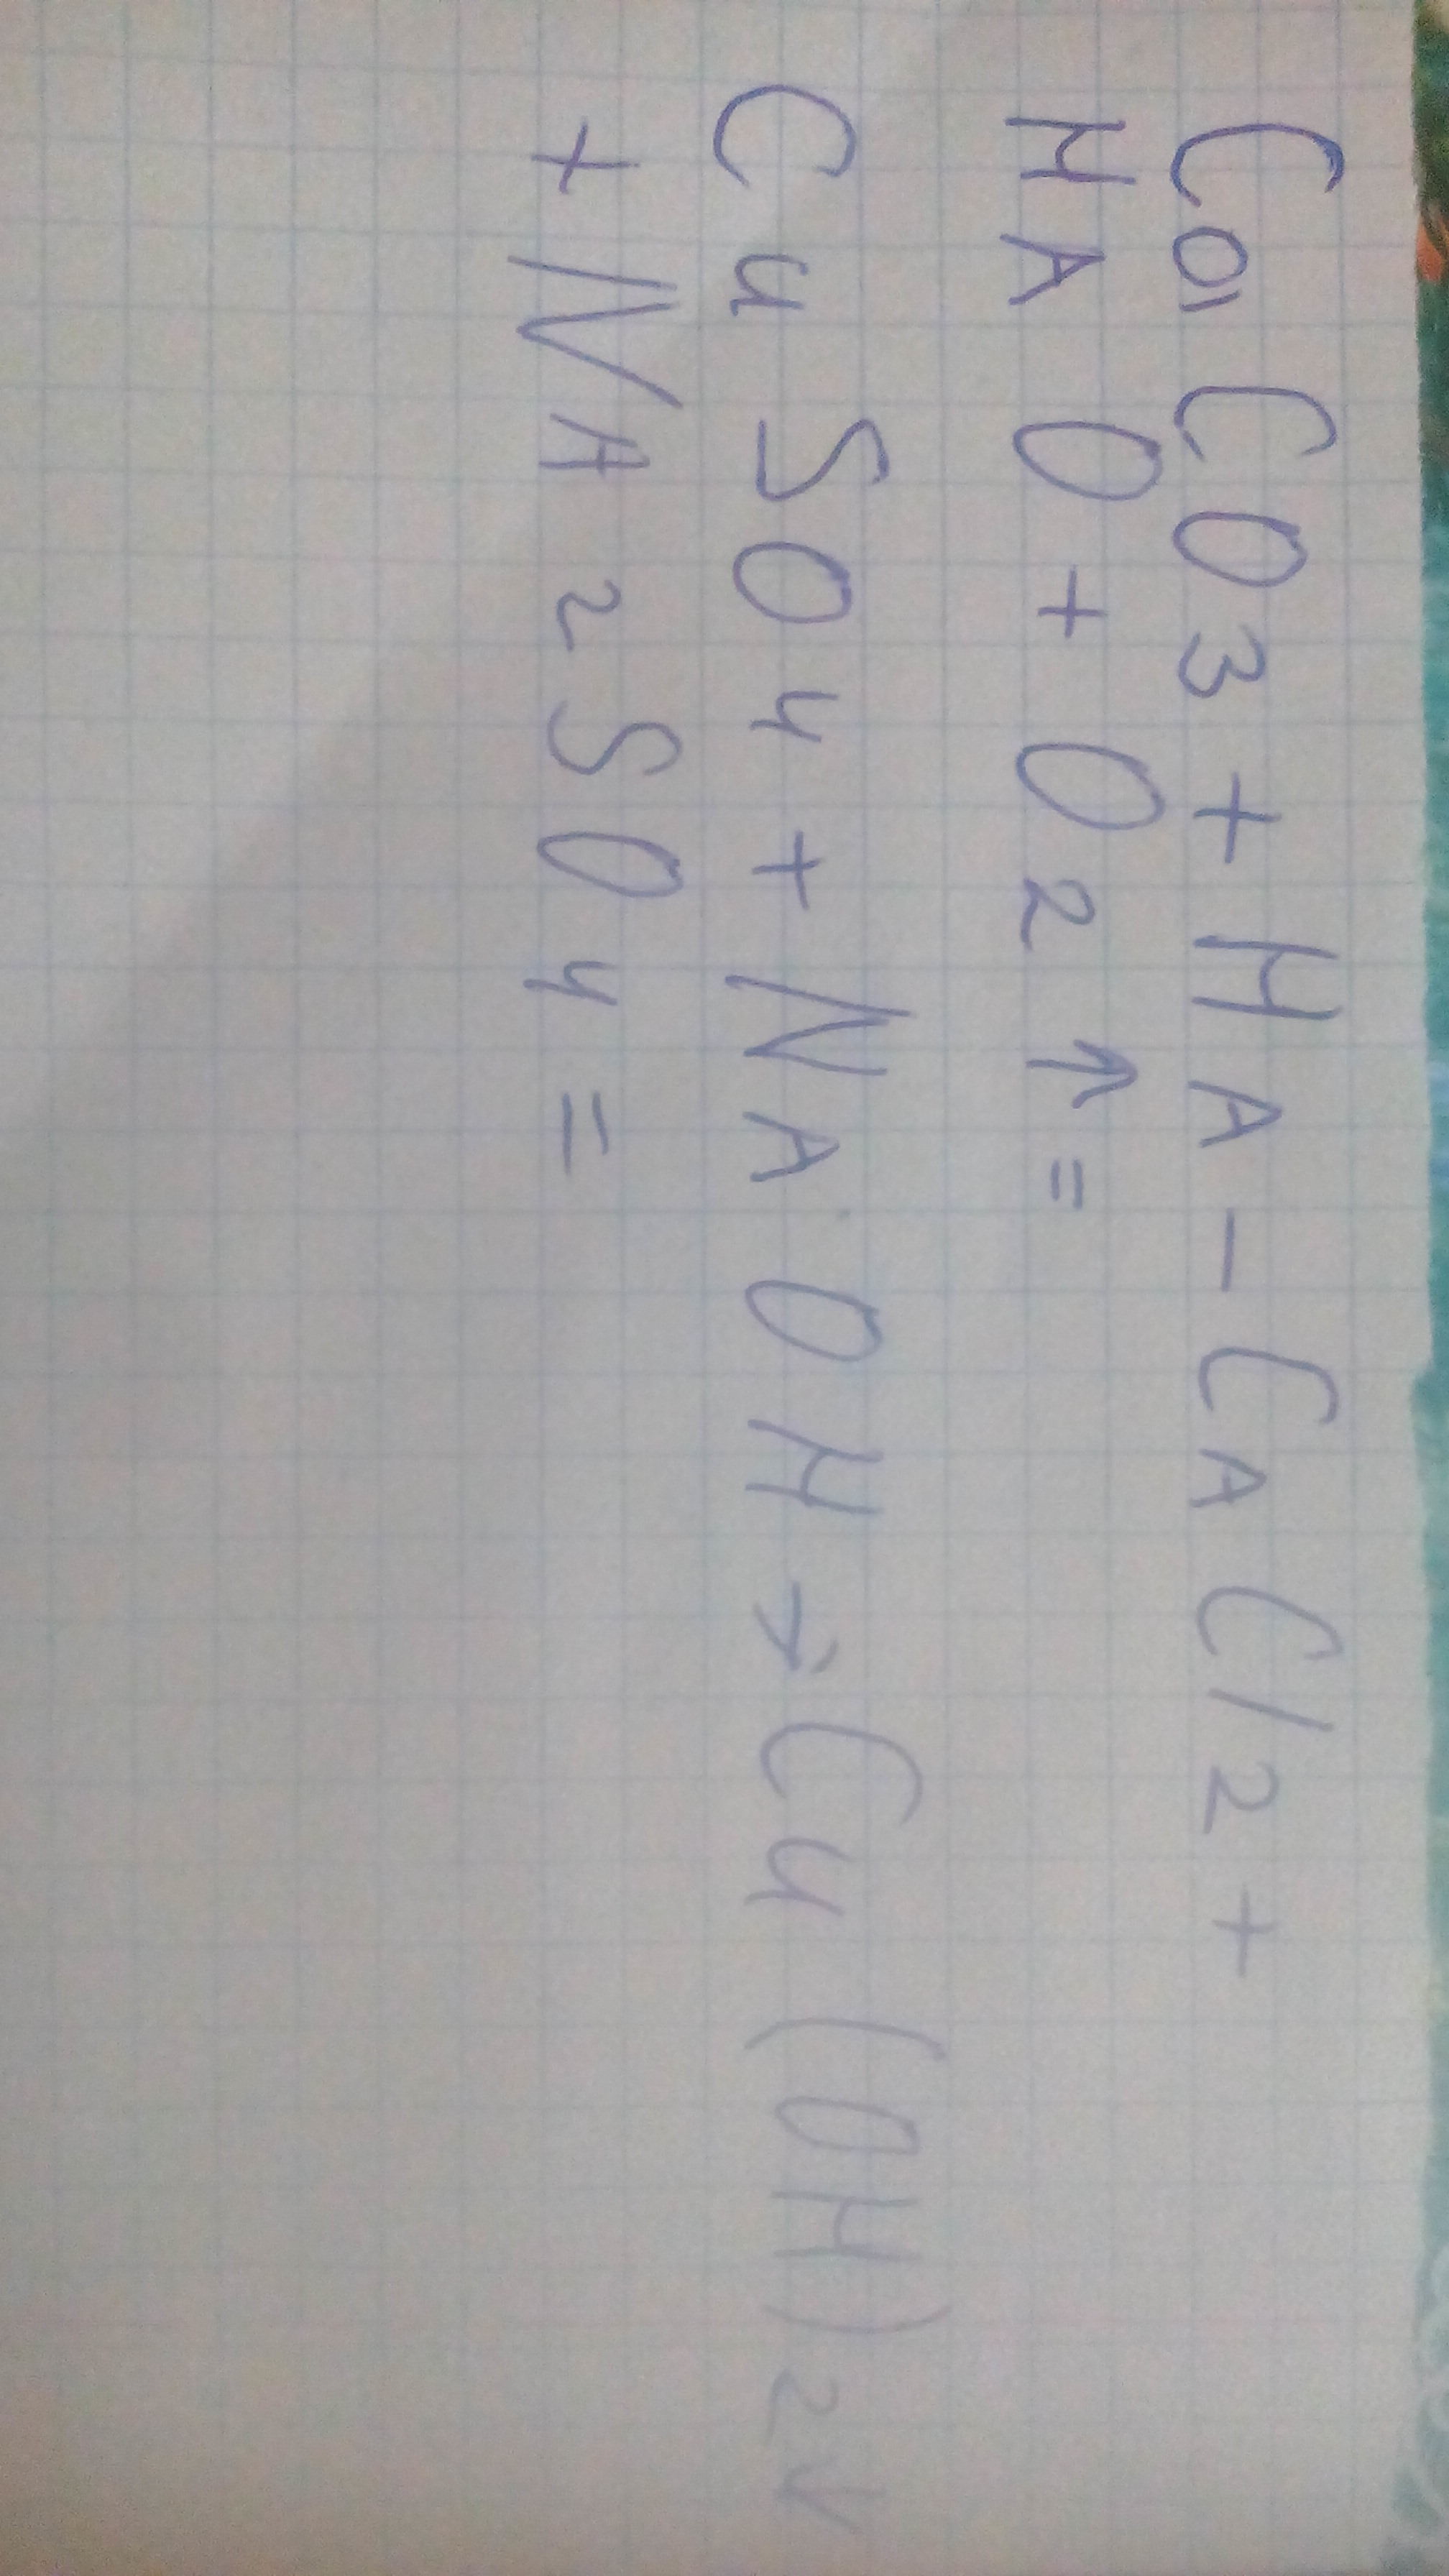 Ca CO3 + HA - CA Cl2 +
HA O + O2 ↑ =
Cu SO4 + NA OH → Cu (OH)2↓
+ NA2 SO4 =